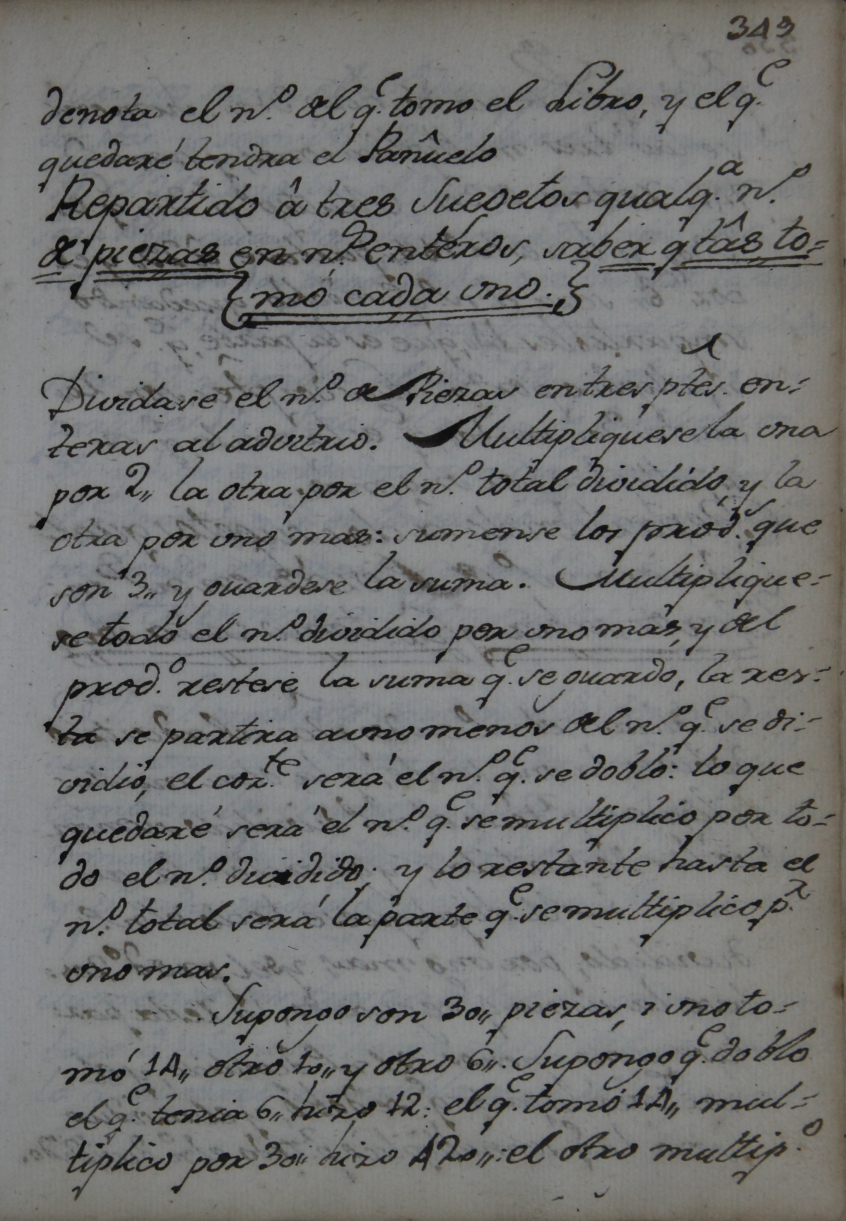 343
denota el n.º del q.e tomo el Libro, y el q.e
quedaré tendra el Pañuelo
Repartido â tres Sugetos qualq.a n.º
de piezas en n.os enteros, saber q tâs to=
{mó cada uno.}
Dividase el n.º de Piezas en tres ptes. en-
teras al advitrio. Multipliquese la una
por 2,, la otra por el n.º total dividido, y la
otra por uno mas: sumense los prod.s que
son 3,, y guardese la suma. Multiplique-
se todo el n.º dividido por uno más, y del
prod.º restese la suma q.e se guardo, la res-
ta se partira a uno menos del n.º q.e se di-
vidió, el coz.te será el n.º q.e se doblo: lo que
quedaré será el n.º q.e se multiplico por to-
do el n.º dividido; y lo restante hasta el
n.º total será la parte q.e se multiplico p.r
uno mas.
Supongo son 30,, piezas, i uno to-
mó 14,, otro 10,, y otro 6,,. Supongo q.e doblo
el q.e tenia 6,, hizo 12: el q.e tomó 14,, mul-
tiplico por 30,, hizo 420,,: el otro multip.º